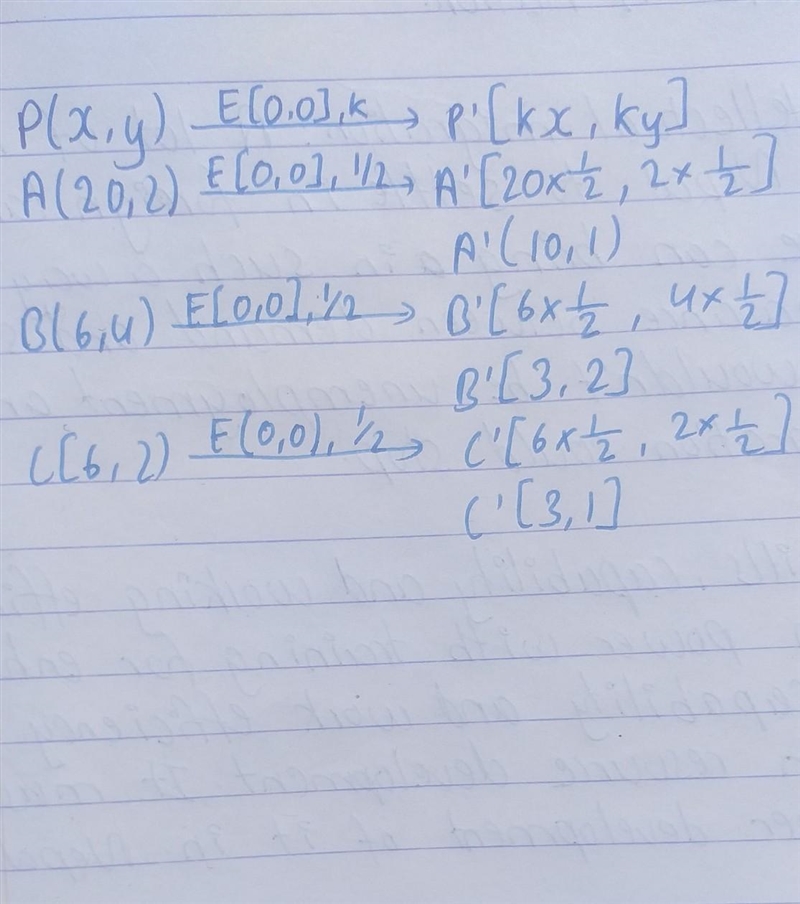 P(x,y) E[0,0],k → P'[kx, ky]
A(20,2) E[0,0], 1/2 → A'[20×1/2, 2×1/2]
A'(10,1)
B(6,4) E[0,0], 1/2 → B'[6×1/2, 4×1/2]
B'[3,2]
C[6,2) E(0,0), 1/2 → C'[6×1/2, 2×1/2]
C'[3,1]